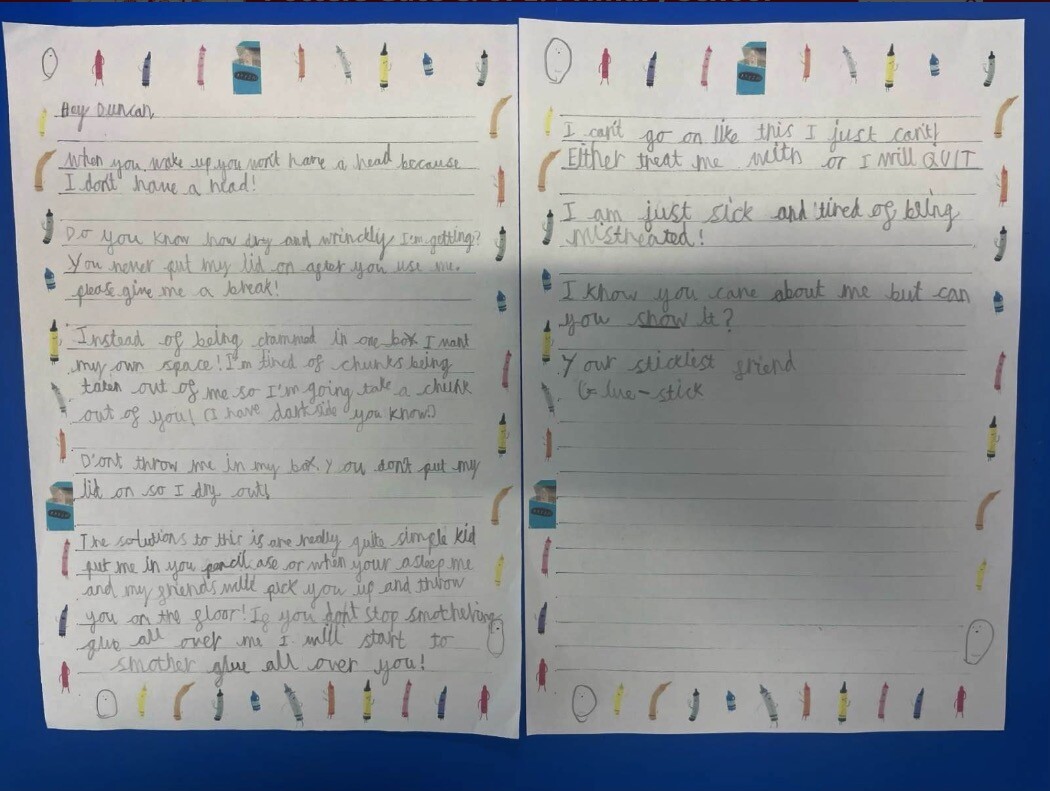 Hey Duncan,
When you wake up you won't have a head because
I don't have a head!
Do you know how dry and wrinckly I'm getting?
You never put my lid on after you use me.
please give me a break!
Instead of being crammed in one box I want
my own space! I'm tired of chunks being
taken out of me so I'm going take a chunk
out of you! (I have dark side you know.)
D'ont throw me in my box. You don't put my
lid on so I dry out!
The solutions to this is are really quite simple kid
put me in you pencil case or when your asleep me
and my friends will pick you up and throw
you on the floor! If you don't stop smothering
glue all over me I will start to
smother glue all over you!
I can't go on like this I just can't!
Either treat me with or I will QUIT
I am just sick and tired of being
mistreated!
I know you care about me but can
you show it?
Your stickiest friend
Glue-stick